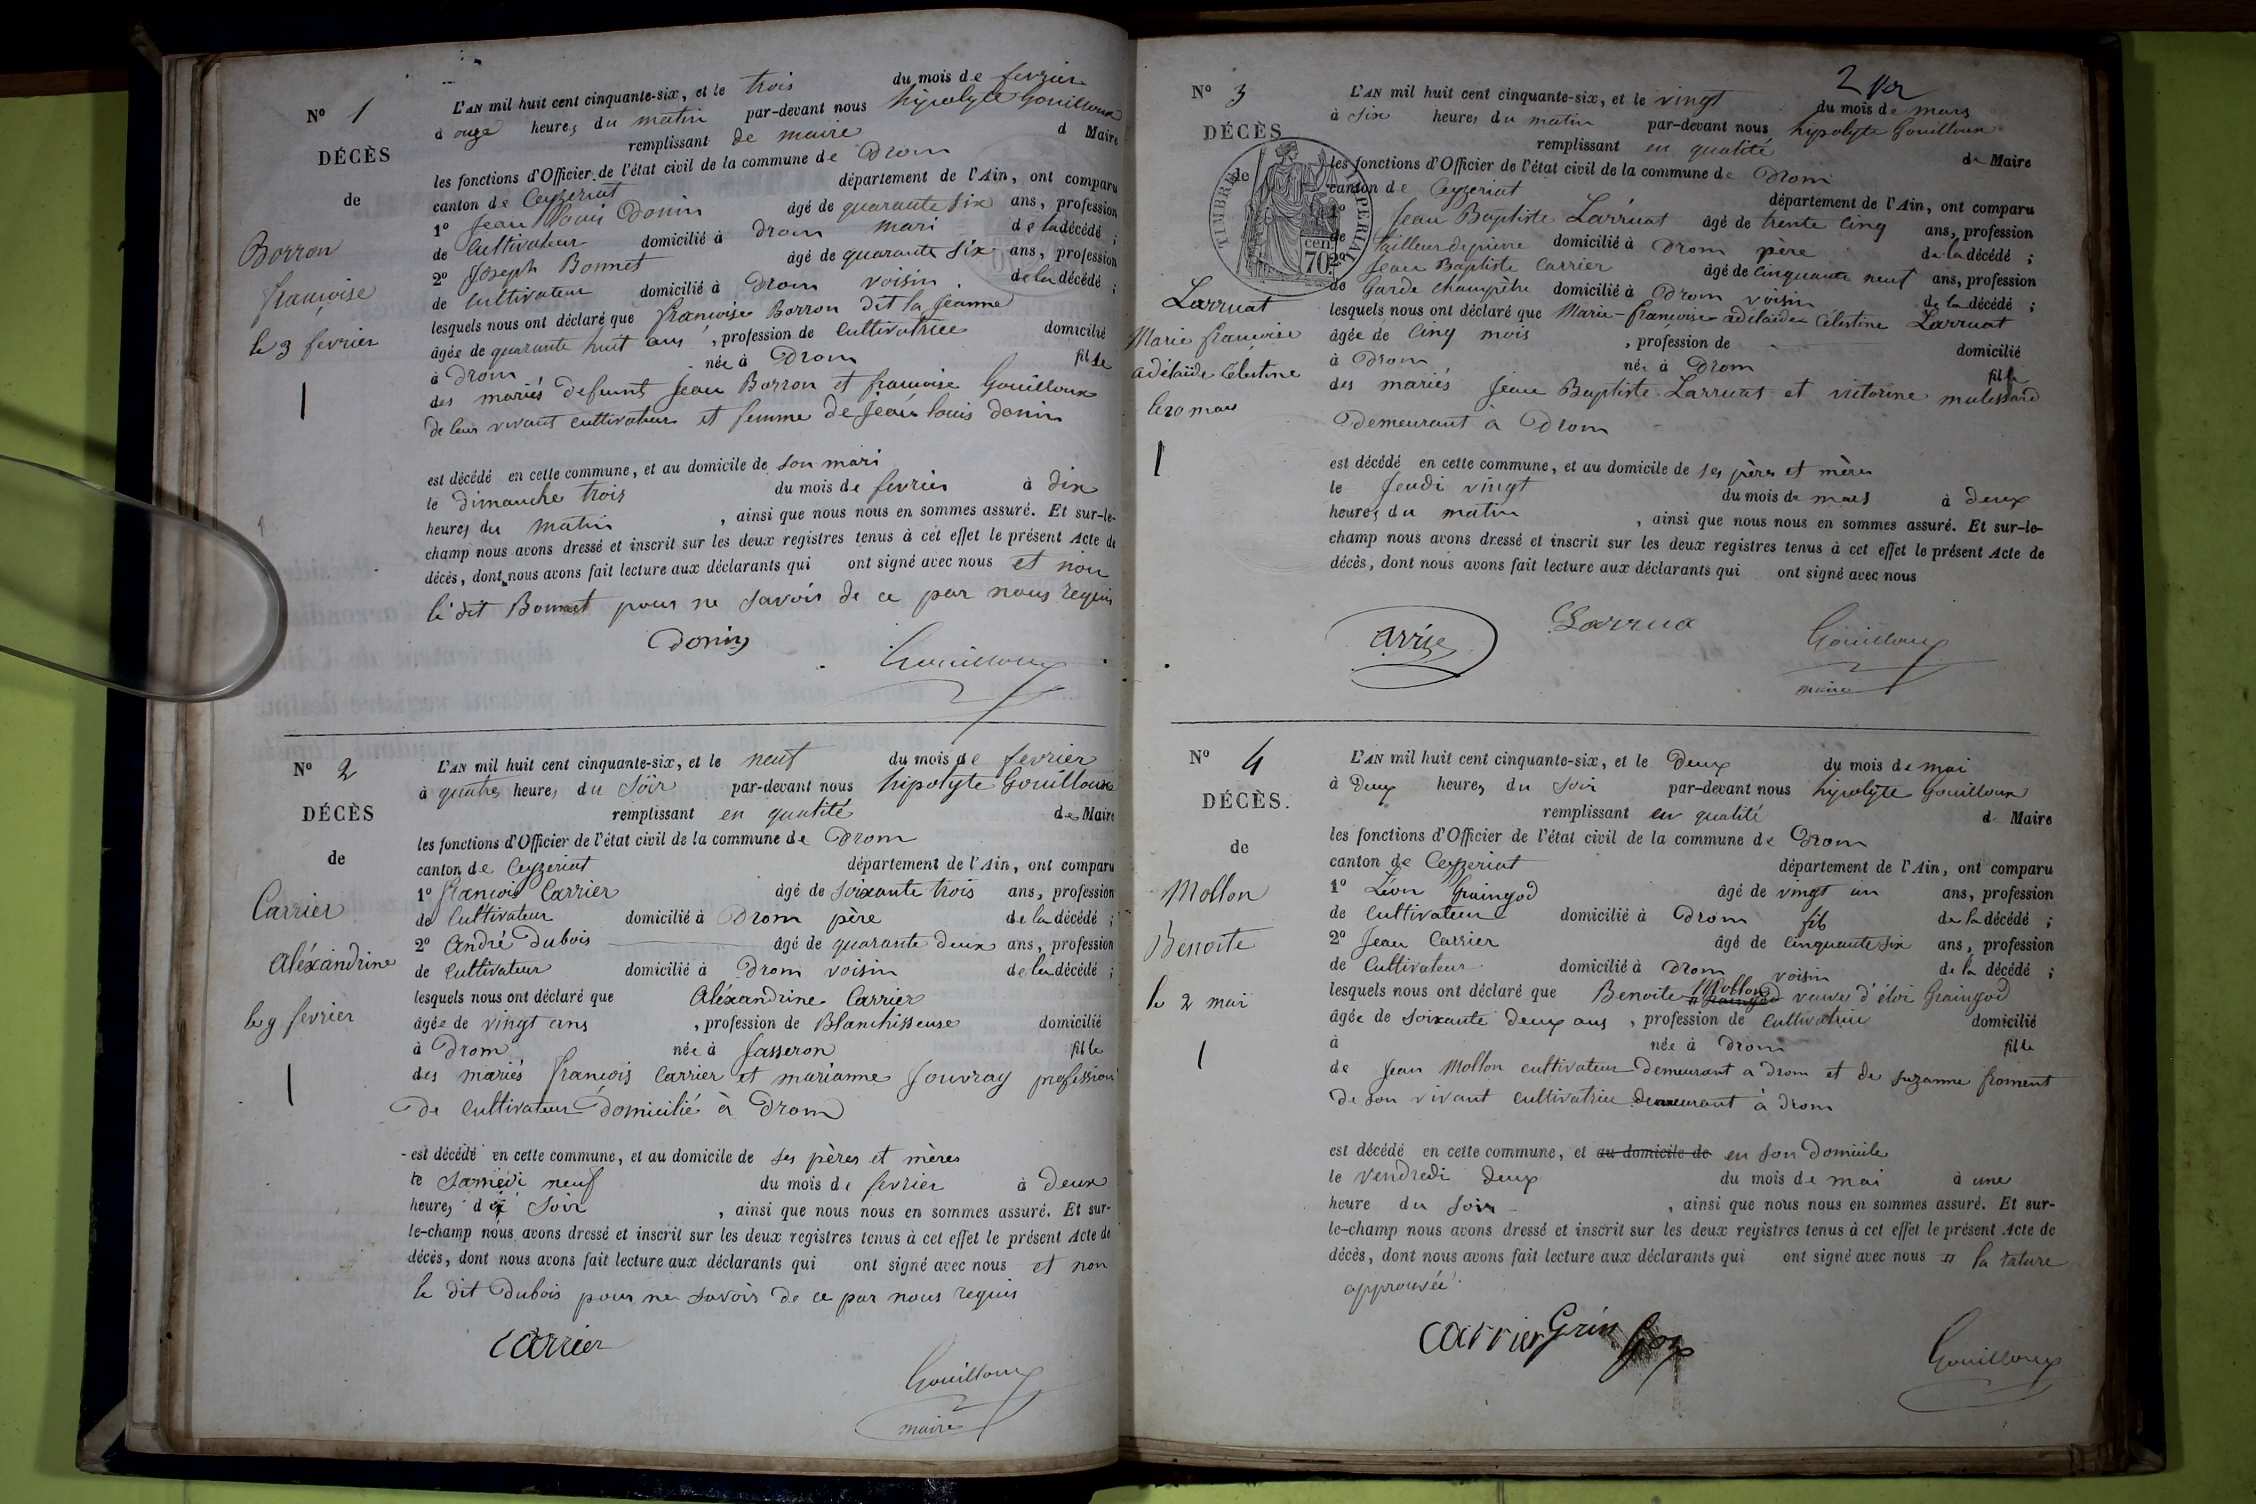 N° 1
DÉCÈS
de
Borron
françoise
le 3 fevrier
L'AN mil huit cent cinquante-six, et le trois du mois de fevrier
à onze heures du matin par-devant nous hipolyte Gouilloux
remplissant de maire d Maire
les fonctions d'Officier de l'état civil de la commune de Drom
canton de Ceyzeriat département de l'Ain, ont comparu
1° Jean Louis Donin âgé de quarante six ans, profession
de Cultivateur domicilié à Drom mari de la décédé ;
2° Joseph Bonnet âgé de quarante six ans, profession
de Cultivateur domicilié à Drom voisin de la décédé ;
lesquels nous ont déclaré que françoise Borron dit la Jeanne
âgée de quarante huit ans, profession de Cultivatrice domicilié
à Drom née à Drom fille
des mariés defunts Jean Borron et françoise Gouilloux
de leur vivant cultivateurs et femme de Jean louis donin
est décédé en cette commune, et au domicile de son mari
le dimanche trois du mois de fevrier à dix
heures du matin, ainsi que nous nous en sommes assuré. Et sur-le-
champ nous avons dressé et inscrit sur les deux registres tenus à cet effet le présent Acte de
décès, dont nous avons fait lecture aux déclarants qui ont signé avec nous et non
le dit Bonnet pour ne savoir de ce par nous requis
Donin
Gouilloux
N° 2
DÉCÈS
de
Carrier
Aléxandrine
le 9 fevrier
L'AN mil huit cent cinquante-six, et le neuf du mois de fevrier
à quatre heures du Soir par-devant nous hipolyte Gouilloux
remplissant en qualité de Maire
les fonctions d'Officier de l'état civil de la commune de Drom
canton de Ceyzeriat département de l'Ain, ont comparu
1° françois Carrier âgé de soixante trois ans, profession
de Cultivateur domicilié à Drom père de la décédé ;
2° André Dubois âgé de quarante deux ans, profession
de Cultivateur domicilié à Drom voisin de la décédé ;
lesquels nous ont déclaré que Aléxandrine Carrier
âgée de vingt ans, profession de Blanchisseuse domicilié
à Drom née à Jasseron fille
des mariés françois Carrier et marianne Jouvray profession
De cultivateur Domicilié à Drom
est décédé en cette commune, et au domicile de ses pères et mères
le Samedi neuf du mois de fevrier à deux
heures du Soir, ainsi que nous nous en sommes assuré. Et sur-
le-champ nous avons dressé et inscrit sur les deux registres tenus à cet effet le présent Acte de
décès, dont nous avons fait lecture aux déclarants qui ont signé avec nous et non
le dit Dubois pour ne savoir de ce par nous requis
Carrier
Gouilloux
maire
N° 3
DÉCÈS
de
TIMBRE IMPERIAL
70 cen.
Larruat
Marie françoise
adélaïde Célestine
le 20 mars
L'AN mil huit cent cinquante-six, et le vingt du mois de mars
à six heures du matin par-devant nous hipolyte Gouilloux
remplissant en qualité de Maire
les fonctions d'Officier de l'état civil de la commune de Drom
canton de Ceyzeriat département de l'Ain, ont comparu
1° Jean Baptiste Larruat âgé de trente cinq ans, profession
de tailleur de pierre domicilié à Drom père de la décédé ;
2° Jean Baptiste Carrier âgé de cinquante neuf ans, profession
de Garde champêtre domicilié à Drom voisin de la décédé ;
lesquels nous ont déclaré que Marie-françoise adélaïde Célestine Larruat
âgée de cinq mois, profession de domicilié
à Drom née à Drom fille
des mariés Jean Baptiste Larruat et victorine
Demeurant à Drom
est décédé en cette commune, et au domicile de ses pères et mères
le Jeudi vingt du mois de mars à deux
heures du matin, ainsi que nous nous en sommes assuré. Et sur-le-
champ nous avons dressé et inscrit sur les deux registres tenus à cet effet le présent Acte de
décès, dont nous avons fait lecture aux déclarants qui ont signé avec nous
Larrua
Gouilloux
maire
N° 4
DÉCÈS.
de
Mollon
Benoite
le 2 mai
L'AN mil huit cent cinquante-six, et le deux du mois de mai
à Deux heures du Soir par-devant nous hipolyte Gouilloux
remplissant en qualité d Maire
les fonctions d'Officier de l'état civil de la commune de Drom
canton de Ceyzeriat département de l'Ain, ont comparu
1° Léon Graingod âgé de vingt un ans, profession
de Cultivateur domicilié à Drom fils de la décédé ;
2° Jean Carrier âgé de cinquante six ans, profession
de Cultivateur domicilié à Drom voisin de la décédé ;
lesquels nous ont déclaré que Benoite Mollon veuve d'éloi Graingod
âgée de soixante deux ans, profession de Cultivatrice domicilié
à née à Drom fille
de Jean Mollon cultivateur demeurant à Drom et de suzanne froment
De son vivant cultivatrice demeurant à Drom
est décédé en cette commune, et au domicile de en son Domicile
le vendredi deux du mois de mai à une
heure du soir, ainsi que nous nous en sommes assuré. Et sur-
le-champ nous avons dressé et inscrit sur les deux registres tenus à cet effet le présent Acte de
décès, dont nous avons fait lecture aux déclarants qui ont signé avec nous la rature
approuvée.
Carrier Grin
Gouilloux